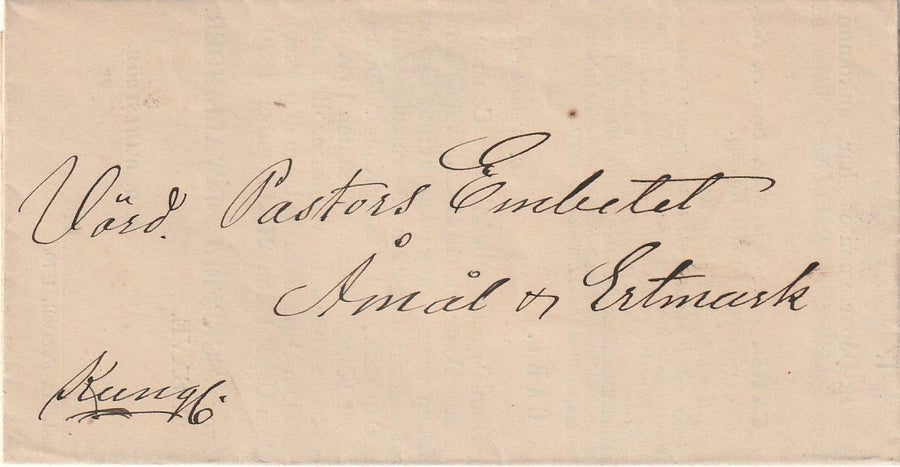 Vörd. Pastors Embetet
Åmål & Ertmark
Kungl.